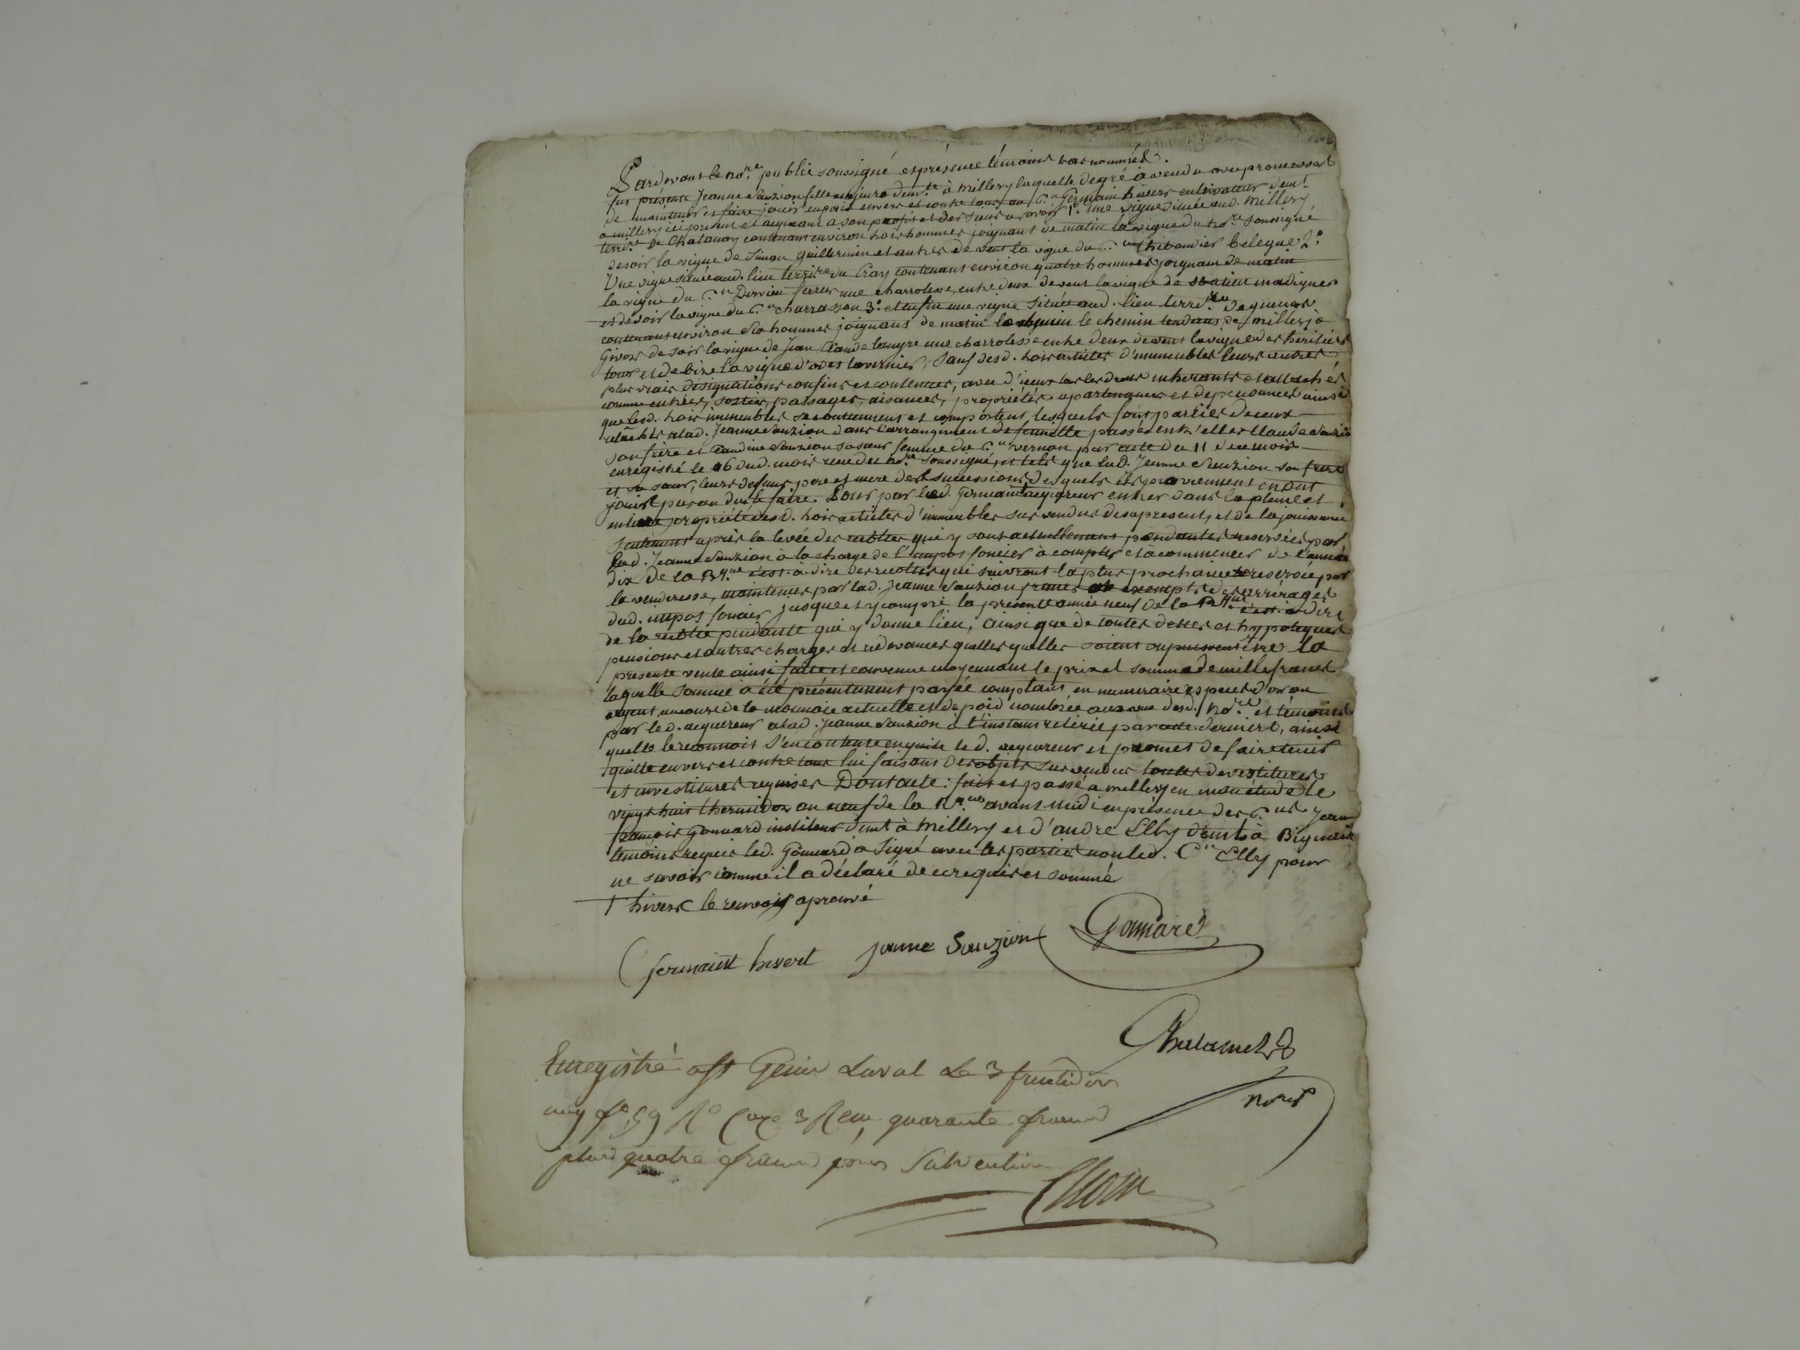 Pardevant le no.re public soussigné et présence témoins bas nommés.
fut présente Jeanne Sauzion fille majeure dem.te à Millery laquelle degré a vendu avec promesse
de maintenir et faire jouir en paix envers et contre tous au C.n Germain hivert cultivateur dem.t
a millery ici présent et acquérant a son profit et des siens a savoir 1.° une vigne située aud. Millery
terri.re de Chalanay contenant environ trois hommes joignant de matin la vigne du no.re soussigné
de soir la vigne de Simon Guillermin et autres de vent la vigne du C.n thibaudier beleque 2.°
Une vigne située aud. lieu terri.re du Cray contenant environ quatre hommes joignant de matin
la vigne du C.n Dervieu ferrer une charrolesse entre deux de vent la vigne de madignier
et de soir la vigne du C.n charrasson 3.° et enfin une vigne située aud. lieu terri.re
contenant environ six hommes joignans de matin le chemin tendant de millery à
Givors de soir la vigne de Jean Claude une charrolesse entre deux de vent la vigne des héritiers
tour et de bize la vigne d' lavernier, Sauf desd. trois articles d'immeubles leurs autres
plus vrais désignations confins et contenues, avec d'iceux tous les droits inhérants et attachés
comme entrées, sorties, passages, aisances, propriétés apartenances et dépendances ainsi
que lesd. trois immeubles se contiennent et comportent, lesquels font parties de ceux
relachés a lad. Jeanne Sauzion dans l'arrangement de famille passé entr'elle Claude Sauzion
son frère et Claudine Sauzion sa sœur femme du C.n vernon par acte du 11 de ce mois
enregistré le 16 dud. mois reçu du no.re soussigné, et tels que lad. Jeanne Sauzion son frère
et sa sœur, leurs defunts pere et mere des successions desquels ils proviennent en ont
joui pu ou du le faire. Pour par led. Germain acquereur entrer dans la pleine et
entière propriété desd. trois articles d'immeubles sus vendus des a present, et de la jouissance
seulement après la levée des recoltes qui y sont actuellement pendantes réservées par
lad. Jeanne Sauzion à la charge de l'impot foncier à compter et à commencer de l'année
dix de la R.que c'est à dire des recoltes qui suivront la plus prochaine réservée par
la venderesse, maintenus par lad. Jeanne Sauzion francs et exempts des arrérages
dud. impot foncier jusques et y compris la présente année neuf de la R.que c'est à dire
de la recolte pendante qui y donne lieu, ainsi que de toutes dettes et hypoteques
pensions et autres charges et redevances quelles quelles soient ou puissent être la
présente vente ainsi faite et convenue moyennant le prix et somme de mille francs
laquelle somme a été présentement payée comptant en numeraire especes d'or ou
argent au cours de la monnoie actuelle et de poid nombrée aux yeux desd. no.re et témoins
par led. acquereur a lad. Jeanne Sauzion à l'instant retirée par cette dernière, ainsi
quelle le reconnoit s'en contente en quitte led. acquereur et promet de faire tenir
quitte envers et contre tous lui faisant des objets sus vendus toutes devestitures
et investitures requises Dont acte: fait et passé a millery en mon étude le
vingt huit thermidor an neuf de la R.que avant midi en présence des C.ns Jean
françois Gonnard instituteur dem.t à Millery et d'andré Elly dem.t à Bignais
témoins requis led. Gonnard a signé avec les parties non led. C.n Elly pour
ne savoir comme il a déclaré de ce requis et sommé
† hivert le renvois aprouvé
Germain hivert Janne Sauzion Gonnard
Enregistré a St Genis Laval Le 3 fructidor
an 9 f.o 59 R.o Case 3 Reçu quarante francs
plus quatre francs pour Subvention